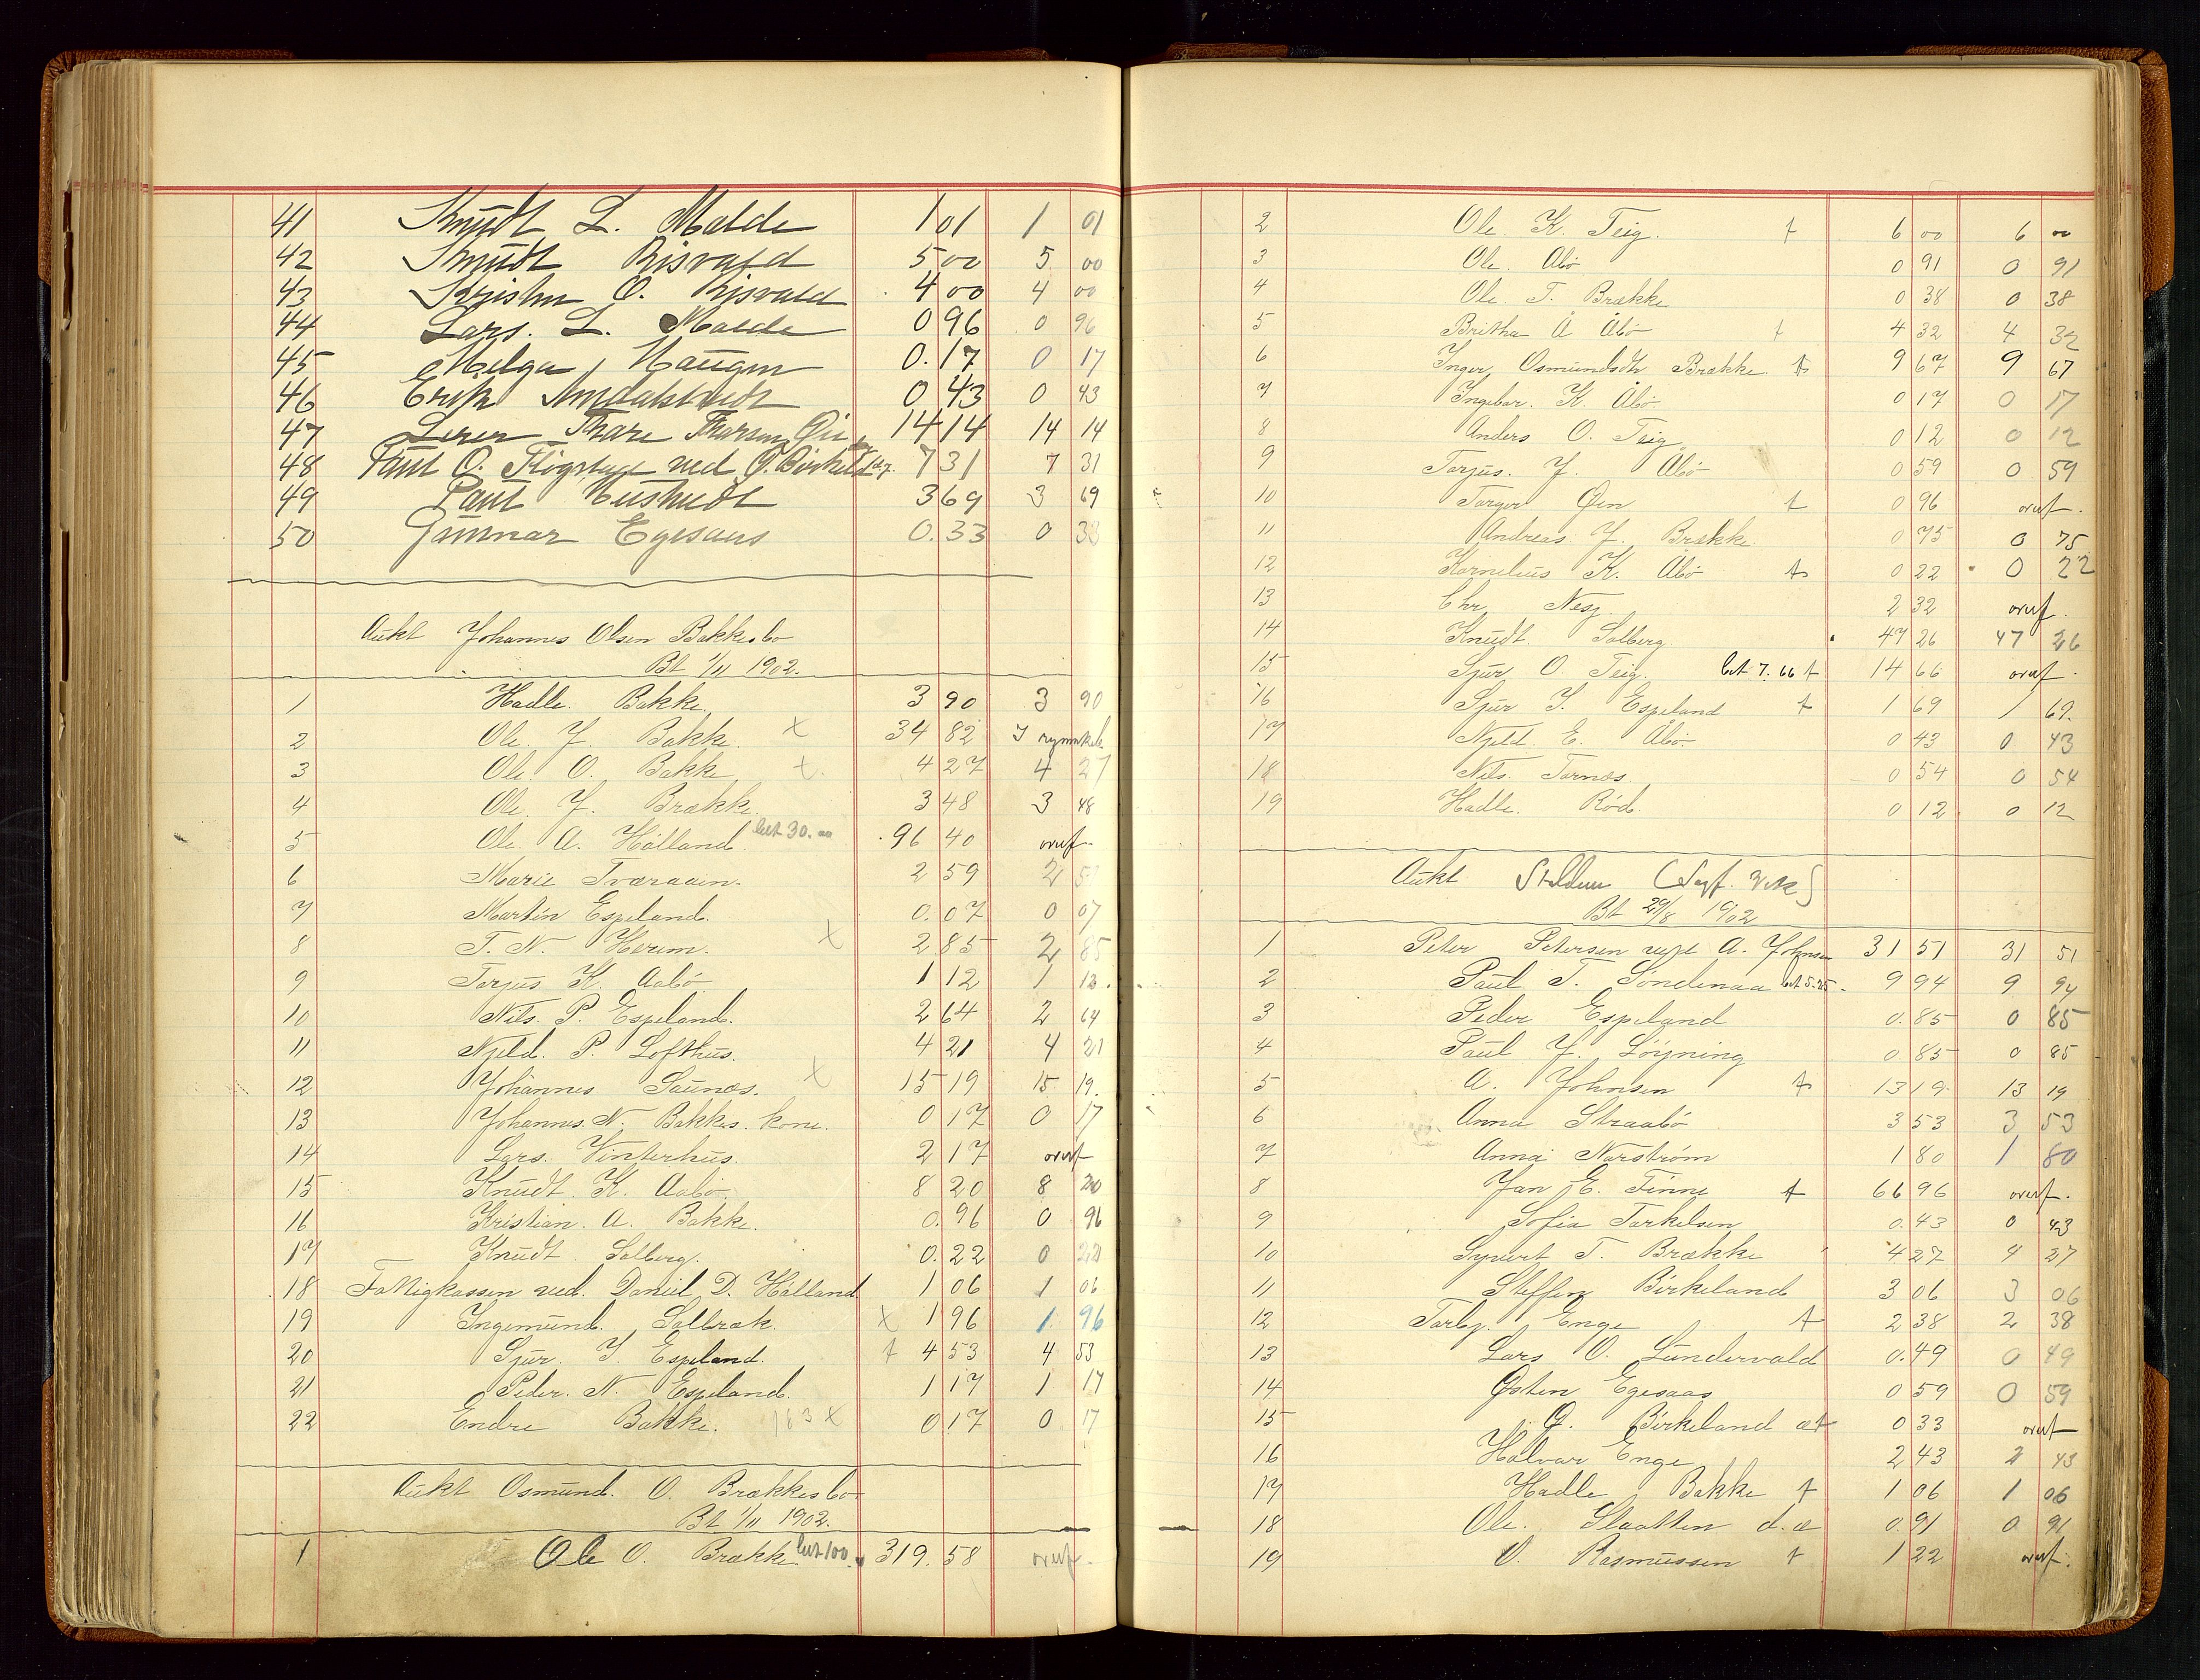 41 Knudt L. Malde 1 01 1 01
42 Knudt Risvald 5 00 5 00
43 O. Risvald 4 00 4 00
44 Lars. L. Malde 0 96 0 96
45 Helga Haugen 0.17 0 17
46 Erik 0 43 0 43
47 Thare 14 14 14 14
48 O. ved O. 7 31 7 31
49 Paul 3 69 3 69
50 Gunnar Egesaas 0.33 0 33
Aukt Johannes Olsen Bakkesbo
Bt 1/11 1902.
1 Hadle. Bakke. 3 90 3 90
2 Ole. J. Bakke. x 34 82
3 Ole O. Bakke x 4 27 4 27
4 Ole J. Brække. 3 48 3 48
5 Ole A. Hålland. bet 30.00 96 40 overf.
6 Marie Tveraaen. 2 59 2 59
7 Martin Espeland. 0.07 0 07
8 T. N. Herem. x 2 85 2 85
9 Torjus K. Aabö 1 12 1 12.
10 Nils. P. Espeland. 2 64 2 64
11 Njeld. P. Lofthus. 4 21 4 21
12 Johannes Saunes. x 15 19 15 19.
13 Johannes. N. Bakkes. kone. 0 17 0 17
14 Lars. Vinterhus. 2 17 overf
15 Knudt. K. Aabö 8 20 8 20
16 Kristian. A. Bakke. 0.96 0 96
17 Knudt. Solberg. 0.22 0 22
18 Fattigkassen ved. Daniel D. Hålland 1 06 1 06
19 Ingemund. Solbræk x 1 96 1 96
20 Sjur. I. Espeland. t 4 53 4 53
21 Peder. N. Espeland. 1 17 1 17
22 Endre Bakke. 163 x 0 17 0 17
Aukt Osmund. O. Brækkesbo
Bt 1/11 1902.
1 Ole O. Brække bet 100. 319.58 overf.
2 Ole. K. Teig. t 6 00 6 00
3 Ole. Abö 0 91 0 91
4 Ole. T. Brække 0 38 0 38
5 Britha Å Åbö t 4 32 4 32
6 Inger Osmundsdtr Brække. t 9 67 9 67
7 Ingebor. K. Åbö. 0 17 0 17
8 Anders O. Teig 0 12 0 12
9 Torjus. J. Åbö 0 59 0 59
10 Torger Øen t 0 96 overf.
11 Andreas J. Brække. 0 75 0 75
12 Kornelius K. Åbö t 0 22 0 22
13 Chr. Nesj. 2 32 overf.
14 Knudt. Solberg 47 26 47 26
15 Sjur O. Teig. bet 7.66 t 14 66 overf.
16 Sjur I. Espeland t 1 69 1 69.
17 Njeld. E. Åbö. 0 43 0 43
18 Nils. Tornæs 0 54 0 54
19 Hadle. Röd. 0 12 0 12
Aukt
Bt 29/8 1902
1 Peter Petersen ved A. Johnsen 31 51 31 51
2 Paul T. Söndenaa bet 5.25. 9 94 9 94
3 Peder Espeland 0.85 0 85
4 Paul J. Löyning 0.85 0 85
5 A. Johnsen t 13 19 13 19
6 Anna Straabö 3 53 3 53
7 Anna Norström 1 80 1 80
8 Jan E. Finne t 66 96 overf.
9 Sofia Torkelsen 0.43 0 43
10 Syvert T. Brække 4 27 4 27
11 Steffen Birkeland 3 06 3 06
12 Torbj. Enge t 2 38 2 38
13 Lars O. Lundervald 0.49 0 49
14 Østen Egesaas 0 59 0 59
15 O. Birkeland 0 33 overf
16 Halvar Enge 2 43 2 43
17 Hadle Bakke t 1 06 1 06
18 Ole. Slaatten d.æ 0.91 0 91
19 O. Rasmussen t 1 22 overf.